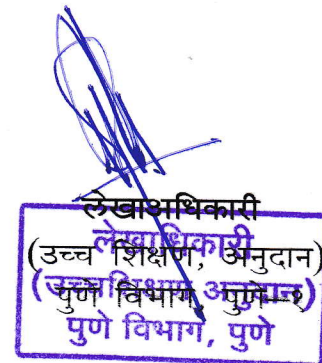 लेखाअधिकारी
(उच्च शिक्षण, अनुदान)
पुणे विभाग, पुणे-१
लेखाधिकारी
(उच्चशिक्षण अनुदान)
पुणे विभाग, पुणे